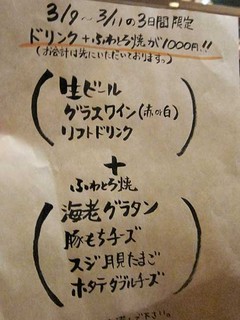 3/9～3/11の3日間限定
ドリンク+ふわとろ焼が1000円!!
(お会計は先にいただいております。)
生ビール
グラスワイン(赤の白)
ソフトドリンク
+
ふわとろ焼
海老グラタン
豚もちチーズ
スジ月見たまご
ホタテダブルチーズ
下さい。